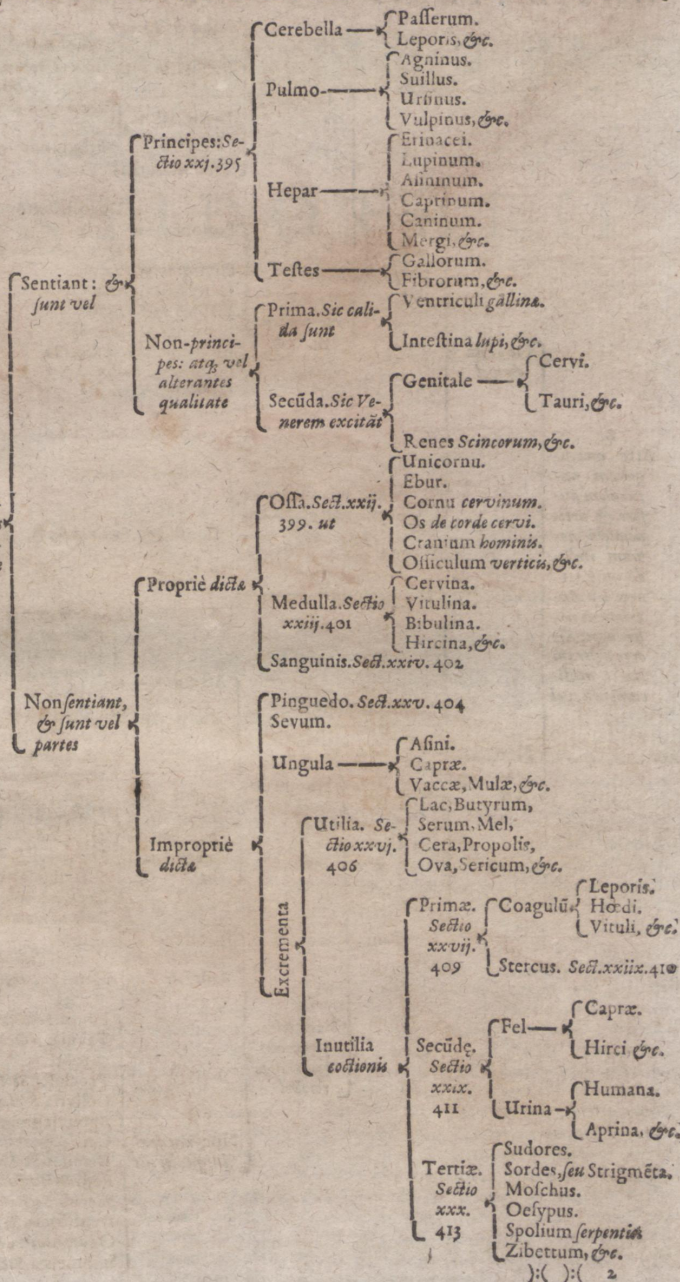 Cerebella
Paſſerum.
Leporis, &c.
Pulmo
Agninus.
Suillus.
Urſinus.
Vulpinus, &c.
Principes: Se-
ctio xxj. 395
Hepar
Erinacei.
Lupinum.
Aſininum.
Caprinum.
Caninum.
Mergi, &c.
Teſtes
Gallorum.
Fibrorum, &c.
Sentiant: &
ſunt vel
Non-princi-
pes: atq; vel
alterantes
qualitate
Prima. Sic cali-
da ſunt
Ventriculi gallinæ.
Inteſtina lupi, &c.
Secūda. Sic Ve-
nerem excitāt
Genitale
Cervi.
Tauri, &c.
Renes Scincorum, &c.
Oſſa. Sect. xxij.
399. ut
Unicornu.
Ebur.
Cornu cervinum.
Os de corde cervi.
Cranium hominis.
Oſſiculum verticis, &c.
Propriè dictæ
Medulla. Sectio
xxiij. 401
Cervina.
Vitulina.
Bibulina.
Hircina, &c.
Sanguinis. Sect. xxiv. 402
Non ſentiant,
& ſunt vel
partes
Pinguedo. Sect. xxv. 404
Sevum.
Ungula
Aſini.
Capræ.
Vaccæ, Mulæ, &c.
Impropriè
dictæ
Excrementa
Utilia. Se-
ctio xxvj.
406
Lac, Butyrum,
Serum, Mel,
Cera, Propolis,
Ova, Sericum, &c.
Inutilia
coctionis
Primæ.
Sectio
xxvij.
409
Coagulū
Leporis.
Hœdi.
Vituli, &c.
Stercus. Sect. xxiix. 410
Secūdę.
Sectio
xxix.
411
Fel
Capræ.
Hirci &c.
Urina
Humana.
Aprina, &c.
Tertiæ.
Sectio
xxx.
413
Sudores.
Sordes, ſeu Strigmēta.
Moſchus.
Oeſypus.
Spolium ſerpentis
Zibettum, &c.
):( ):( 2